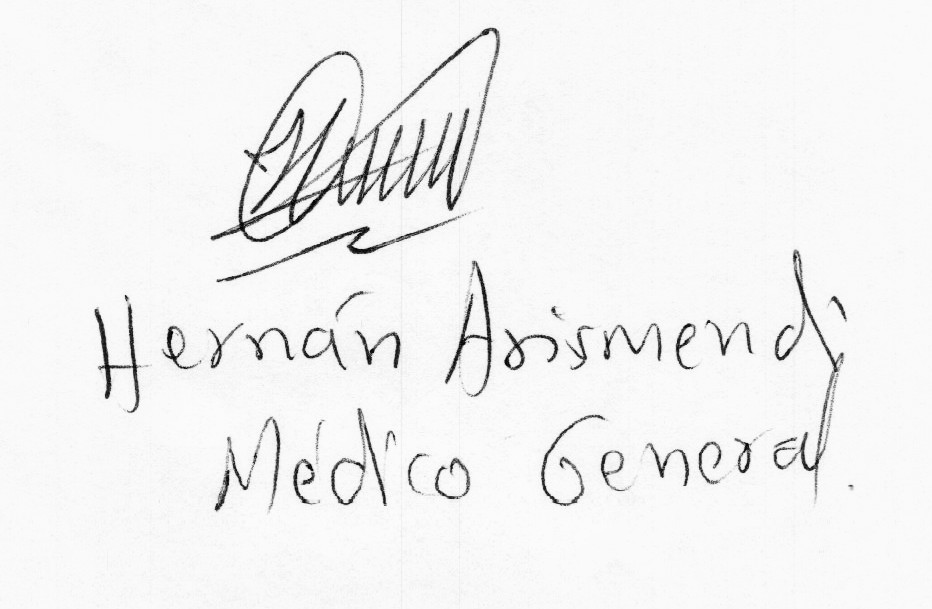 Hernán Arismendi
Médico General.